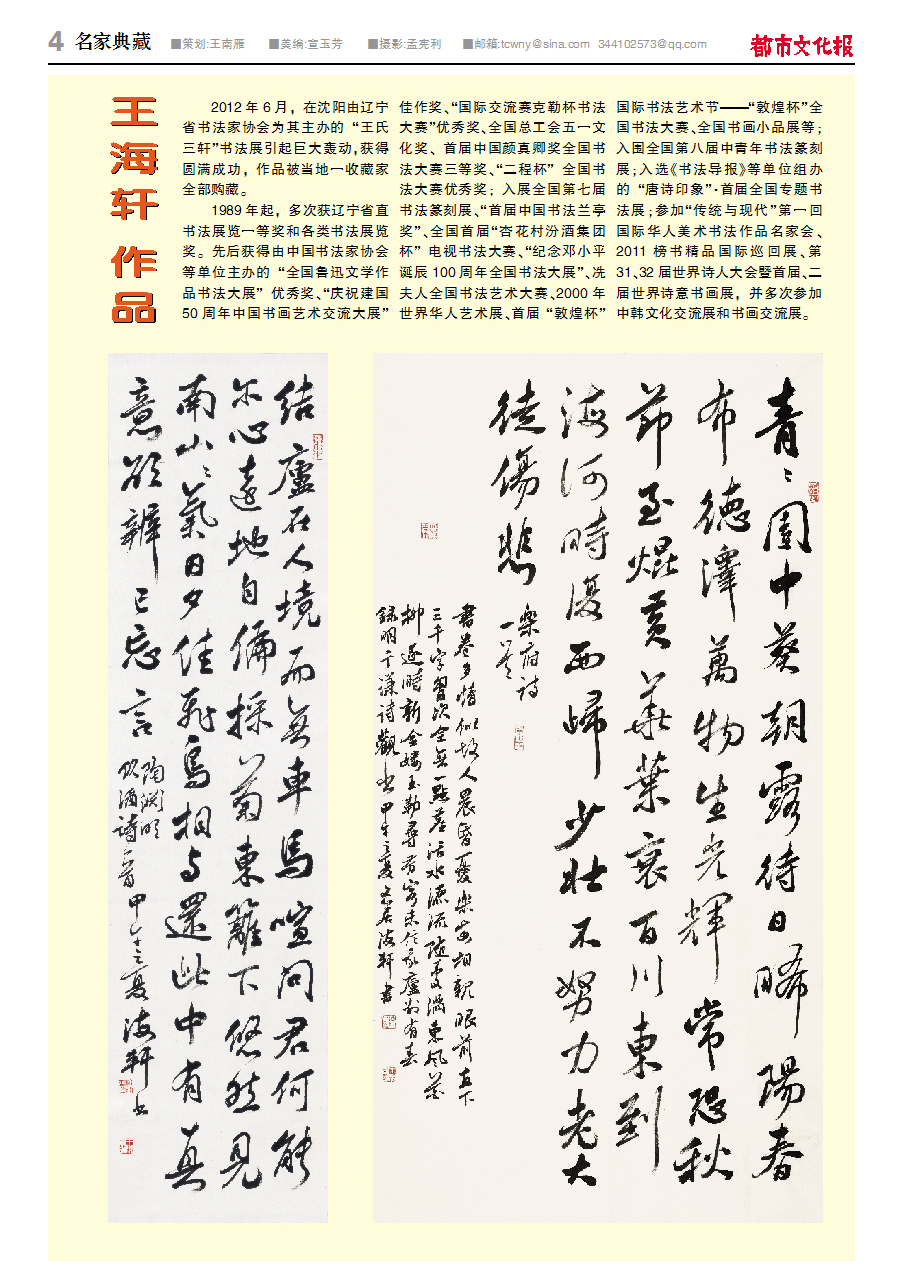 4 名家典藏 ■策划:王南雁 ■美编:宣玉芳 ■摄影:孟宪利 ■邮箱:tcwny@sina.com 344102573@qq.com 都市文化报
王海轩 作品
2012 年 6 月，在沈阳由辽宁
省书法家协会为其主办的 “王氏
三轩”书法展引起巨大轰动,获得
圆满成功，作品被当地一收藏家
全部购藏。
1989 年起，多次获辽宁省直
书法展览一等奖和各类书法展览
奖。先后获得由中国书法家协会
等单位主办的 “全国鲁迅文学作
品书法大展” 优秀奖、“庆祝建国
50 周年中国书画艺术交流大展”
佳作奖、“国际交流赛克勒杯书法
大赛”优秀奖、全国总工会五一文
化奖、首届中国颜真卿奖全国书
法大赛三等奖、“二程杯” 全国书
法大赛优秀奖；入展全国第七届
书法篆刻展、“首届中国书法兰亭
奖”、全国首届“杏花村汾酒集团
杯” 电视书法大赛、“纪念邓小平
诞辰 100 周年全国书法大展”、冼
夫人全国书法艺术大赛、2000 年
世界华人艺术展、首届 “敦煌杯”
国际书法艺术节——“敦煌杯”全
国书法大赛、全国书画小品展等；
入围全国第八届中青年书法篆刻
展；入选《书法导报》等单位组办
的 “唐诗印象”·首届全国专题书
法展；参加“传统与现代”第一回
国际华人美术书法作品名家会、
2011 榜书精品国际巡回展、第
31、32 届世界诗人大会暨首届、二
届世界诗意书画展，并多次参加
中韩文化交流展和书画交流展。
结廬在人境而無車馬喧问君何能
尔心遠地自偏採菊東籬下悠然見
南山山氣日夕佳飛鳥相与還此中有真
意欲辨已忘言
陶渊明
饮酒诗一首 甲午之夏海轩书
青青園中葵朝露待日晞陽春
布德澤萬物生光輝常恐秋
節至焜黄華葉衰百川東到
海何時復西歸少壮不努力老大
徒傷悲
樂府诗
一首
書卷多情似故人晨昏憂樂每相親眼前直下
三千字胷次全無一點塵活水源流随處满東風花
柳逐時新金鞍玉勒尋芳客未信我廬别有春
録明于谦诗觀书 甲午之夏 海轩書